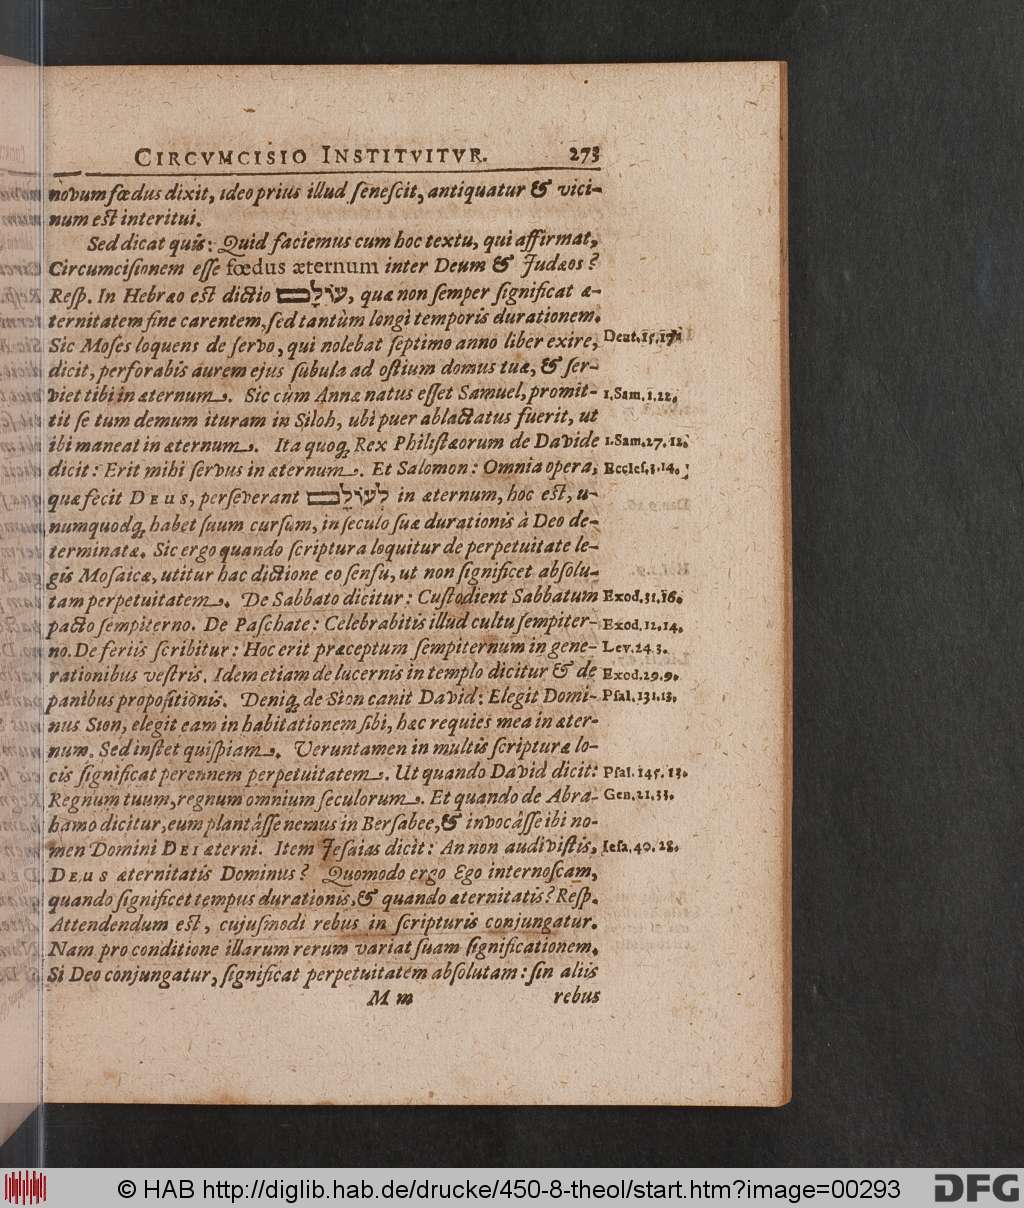 CIRCVMCISIO INSTITVITVR. 273
novum fœdus dixit, ideo prius illud ſeneſcit, antiquatur & vici-
num est interitui.
Sed dicat quis: Quid faciemus cum hoc textu, qui affirmat,
Circumciſionem eſſe fœdus æternum inter Deum & Judæos?
Reſp. In Hebræo est dictio עוֹלָם, quæ non ſemper ſignificat æ-
ternitatem fine carentem, ſed tantùm longi temporis durationem.
Sic Moſes loquens de ſervo, qui nolebat ſeptimo anno liber exire, Deut. 15. 17.
dicit, perforabis aurem ejus ſubula ad oſtium domus tuæ, & ſer-
viet tibi in æternum. Sic cùm Annæ natus eſſet Samuel, promit- 1. Sam. 1. 22.
tit ſe tum demum ituram in Siloh, ubi puer ablactatus fuerit, ut
ibi maneat in æternum. Ita quoq; Rex Philiſtæorum de Davide 1. Sam. 27. 12.
dicit: Erit mihi ſervus in æternum. Et Salomon: Omnia opera, Eccleſ. 3. 14.
quæ fecit DEUS, perſeverant לְעוֹלָם in æternum, hoc est, u-
numquodq; habet ſuum curſum, in ſeculo ſuæ durationis à Deo de-
terminatæ. Sic ergo quando ſcriptura loquitur de perpetuitate le-
gis Moſaicæ, utitur hac dictione eo ſenſu, ut non ſignificet abſolu-
tam perpetuitatem. De Sabbato dicitur: Cuſtodient Sabbatum Exod. 31. 16.
pacto ſempiterno. De Paſchate: Celebrabitis illud cultu ſempiter- Exod. 12. 14.
no. De feriis ſcribitur: Hoc erit præceptum ſempiternum in gene- Lev. 24. 3.
rationibus veſtris. Idem etiam de lucernis in templo dicitur & de Exod. 29. 9.
panibus propoſitionis. Deniq; de Sion canit David: Elegit Domi- Pſal. 131. 13.
nus Sion, elegit eam in habitationem ſibi, hæc requies mea in æter-
num. Sed inſtet quiſpiam. Veruntamen in multis ſcripturæ lo-
cis ſignificat perennem perpetuitatem. Ut quando David dicit: Pſal. 145. 13.
Regnum tuum, regnum omnium ſeculorum. Et quando de Abra- Gen. 21. 33.
hamo dicitur, eum plantâſſe nemus in Berſabee, & invocâſſe ibi no-
men Domini DEI æterni. Item Jeſaias dicit: An non audiviſtis, Ieſa. 40. 28.
DEUS æternitatis Dominus? Quomodo ergo Ego internoſcam,
quando ſignificet tempus durationis, & quando æternitatis? Reſp.
Attendendum est, cujuſmodi rebus in ſcripturis conjungatur.
Nam pro conditione illarum rerum variat ſuam ſignificationem.
Si Deo conjungatur, ſignificat perpetuitatem abſolutam: ſin aliis
M m rebus
© HAB http://diglib.hab.de/drucke/450-8-theol/start.htm?image=00293 DFG